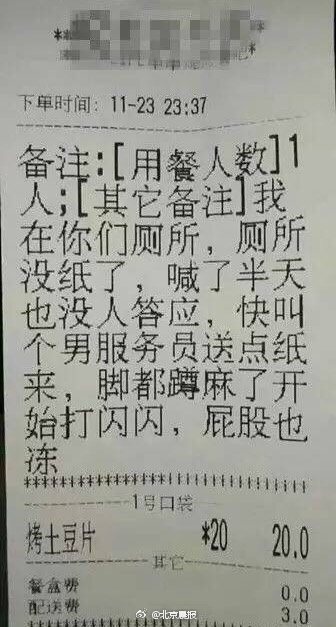 下单时间: 11-23 23:37
备注:[用餐人数]1
人;[其它备注]我
在你们厕所，厕所
没纸了，喊了半天
也没人答应，快叫
个男服务员送点纸
来，脚都蹲麻了开
始打闪闪，屁股也
冻
1号口袋
烤土豆片 *20 20.0
其它
餐盒费 0.0
配送费 3.0
@北京晨报